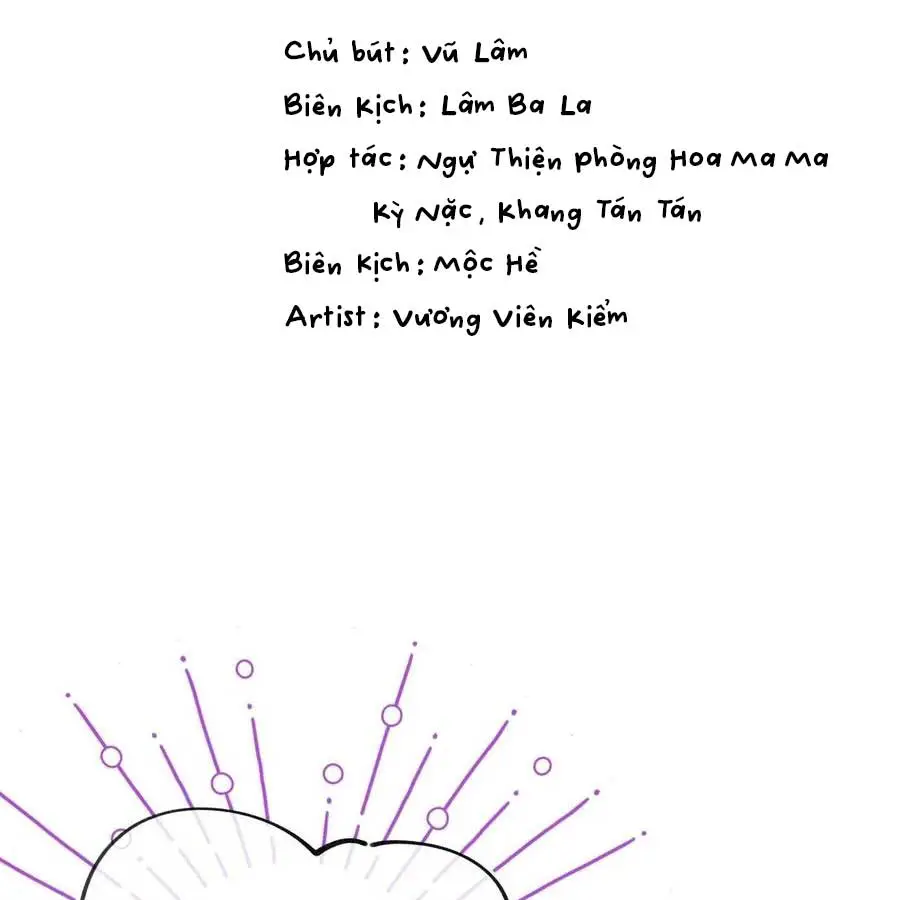 Chủ bút: Vũ Lâm
Biên Kịch: Lâm Ba La
Hợp tác: Ngự Thiện Phòng Hoa Ma Ma
Kỳ Nặc, Khang Tán Tán
Biên Kịch: Mộc Hề
Artist: Vương Viên Kiểm